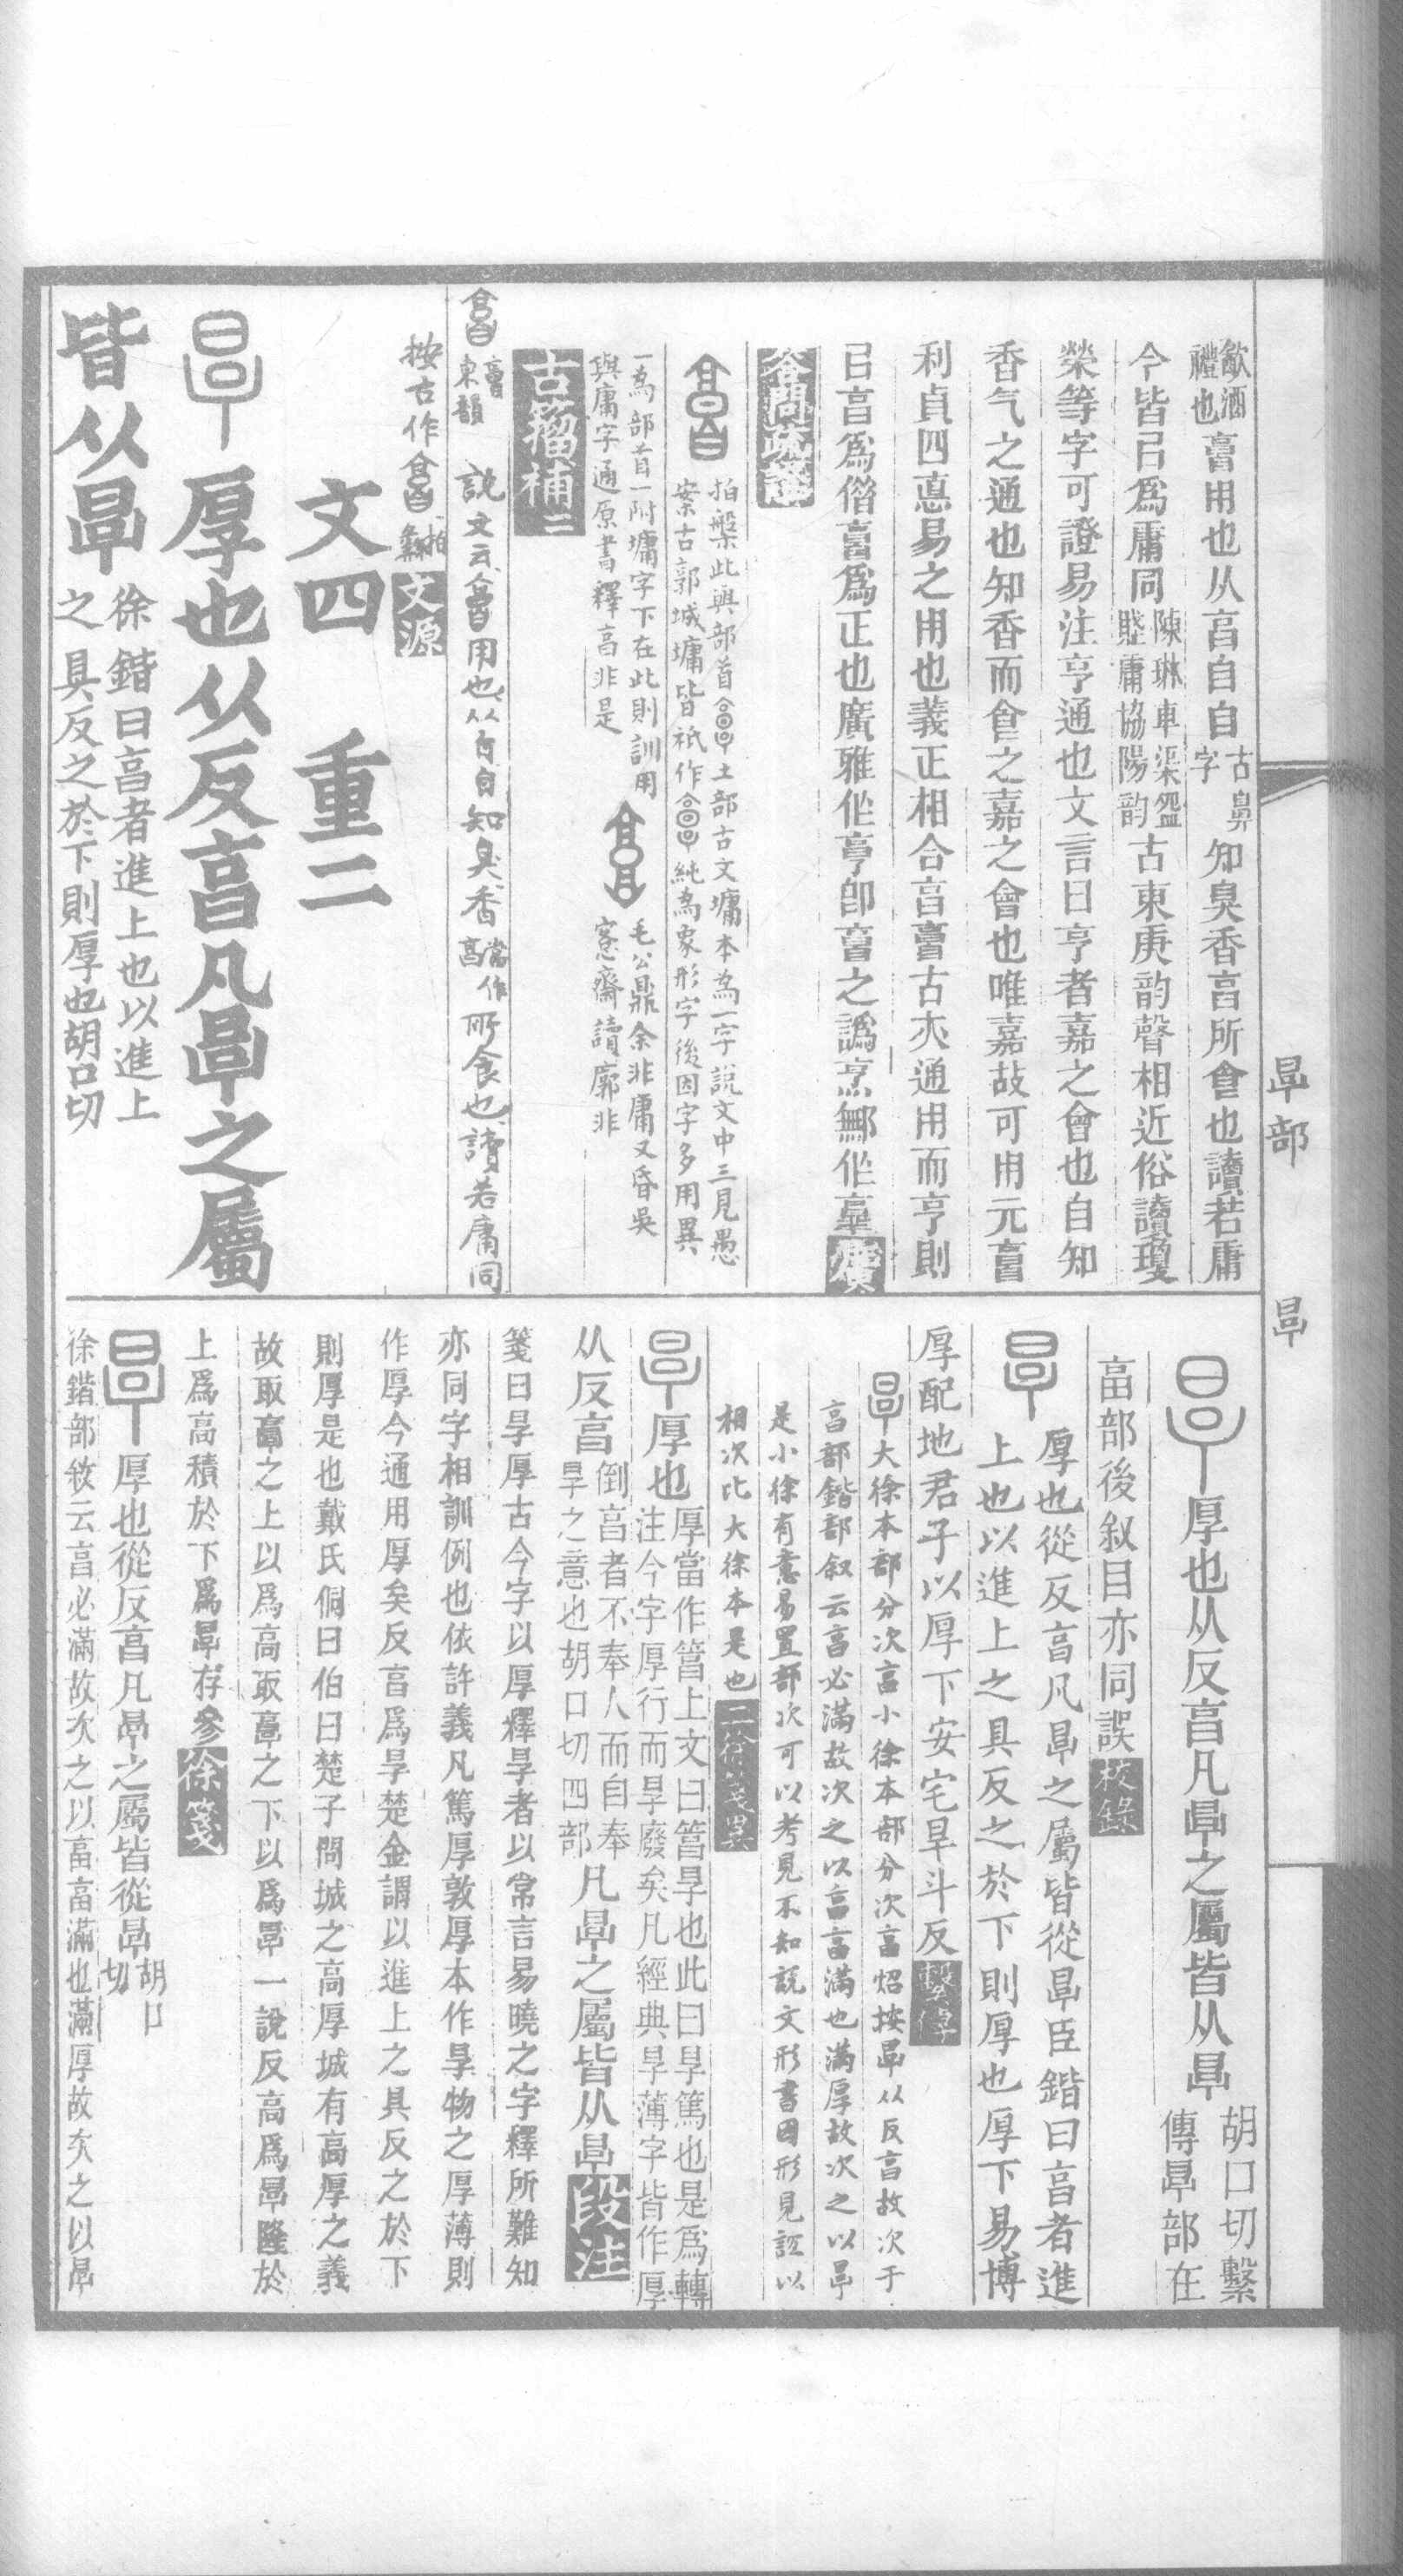 㫗部 㫗
歓酒禮也
𦤎用也从亯自自古鼻字知臭香亯所㑹也讀若庸
今皆㠯爲庸同陳琳車渠盌賦庸協陽韵古東庚韵聲相近俗讀瓊
榮等字可證易注亨通也文言曰亨者嘉之會也自知
香气之通也知香而㑹之嘉之會也唯嘉故可用元𦤎
利貞四悳易之用也義正相合亯𦤎古亦通用而亨則
㠯亯爲偕亯爲正也廣雅作亭卽𦤎之譌烹鄦作𦎫
答問疏證
拍槃此與部首土部古文墉本爲一字說文中三見愚
案古郭城墉皆祇作純爲象形字後因字多用異
一爲部首一附墉字下在此則訓用
與庸字通原書釋亯非是
毛公鼎余非庸又昏吳
愙齋讀廓非
古籀補二
𦤎東韻
說文云𦤎用也从亯自知臭香當作亯所食也讀若庸同
按古作拍彝文源
文四 重二
厚也从反亯凡㫗之屬
皆从㫗徐鍇曰亯者進上也以進上
之具反之於下則厚也胡口切
厚也从反亯凡㫗之屬皆从㫗胡口切繫
傳㫗部在
畗部後叙目亦同誤校錄
厚也從反亯凡㫗之屬皆從㫗臣鍇曰亯者進
上也以進上之具反之於下則厚也厚下易博
厚配地君子以厚下安宅旱斗反繫傳
大徐本部分次亯小徐本部分次畗炤按㫗从反亯故次于
亯部鍇部叙云亯必滿故次之以畗畗滿也滿厚故次之以㫗
是小徐有意易置部次可以考見不知説文形書因形見誼以
相次比大徐本是也二徐箋異
厚也厚當作篤上文曰篤㫗也此曰㫗篤也是爲轉
注今字厚行而㫗廢矣凡經典㫗薄字皆作厚
从反亯倒亯者不奉人而自奉
㫗之意也胡口切四部凡㫗之屬皆从㫗段注
箋曰㫗厚古今字以厚釋㫗者以常言易曉之字釋所難知
亦同字相訓例也依許義凡篤厚敦厚本作㫗物之厚薄則
作厚今通用厚矣反亯爲㫗楚金謂以進上之具反之於下
則厚是也戴氏侗曰伯曰楚子問城之高厚城有高厚之義
故取𩫏之上以爲高取𩫏之下以爲㫗一說反高爲㫗隆於
上爲高積於下爲㫗存參徐箋
厚也從反亯凡㫗之屬皆從㫗胡口切
徐鍇部敘云亯必滿故次之以畗畗滿也滿厚故次之以㫗